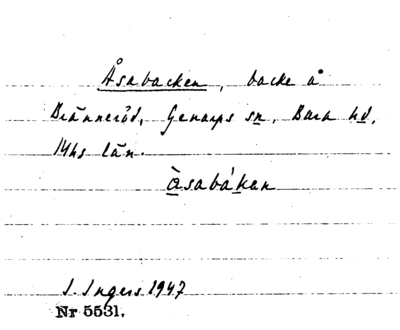 Åsabacken, backe å
Bränneröd, Genarps sn, Bara hd,
Mhs län.
åsabákan
I. Ingers 1947
Nr 5531.